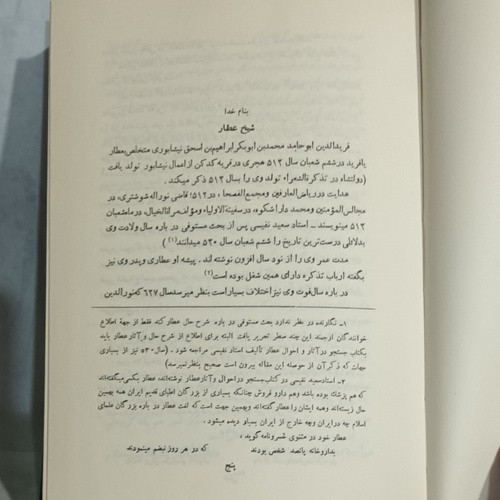 بنام خدا
شیخ عطار
فریدالدین ابوحامد محمدبن ابوبکر ابراهیم‌بن اسحق نیشابوری متخلص بعطار
یا فرید در ششم شعبان سال ۵۱۳ هجری در قریه کدکن از اعمال نیشابور تولد یافت
(دولتشاه در تذکرة الشعراء تولد وی را بسال ۵۱۳ ذکر میکند.
هدایت در ریاض العارفین و مجمع الفصحا، در ۵۱۲؛ قاضی نورالله شوشتری، در
مجالس المؤمنین و محمد داراشکوه، در سفینة الاولیاء و مؤلف مرآة الخیال، در ماه شعبان
۵۱۳ مینویسند ـ استاد سعید نفیسی پس از بحث مستوفی در باره سال ولادت وی
بدلائلی درست‌ترین تاریخ را ششم شعبان سال ۵۳۰ میدانند (۱)
مدت عمر وی را از نود سال افزون نوشته اند. پیشه او عطاری و پدر وی نیز
بگفته ارباب تذکره دارای همین شغل بوده است (۲)
در باره سال فوت وی نیز اختلاف بسیار است بنظر میرسد سال ۶۲۷ که نورالدین
۱ـ نگارنده در نظر ندارد بحث مستوفی در باره شرح حال عطار کند فقط از جهة اطلاع
خوانندگان ارجمند این چند سطر تحریر یافت البته برای اطلاع از شرح حال و آثار عطار باید
بکتاب جستجو در آثار و احوال عطار تألیف استاد نفیسی مراجعه شود. (سال ۵۳۰ نیز از بسیاری
جهات که ذکر آن از حوصله این مقاله بیرون است صحیح بنظر نمیرسد)
۲ـ استاد سعید نفیسی در کتاب جستجو در احوال و آثار عطار نوشته‌اند، عطار بکسی میگفته‌اند
که هم پزشک بوده باشد وهم دارو فروش چنانکه بسیاری از بزرگان اطبای قدیم ایران همه بهمین
حال زیسته‌اند و همه ایشان را عطار گفته‌اند و بهمین جهت است که لغت عطار در باره بزرگان علمای
اسلام چه در ایران وچه خارج از ایران بسیار دیده میشود.
عطار خود در مثنوی خسرونامه گوید:
بداروخانه پانصد شخص بودند که در هر روز نبضم مینمودند
پنج